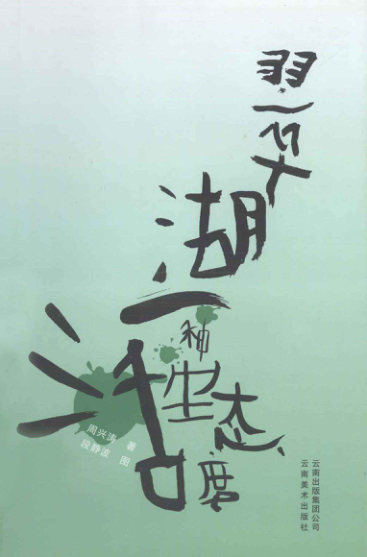 翠湖
一种生活态度
周兴涛 著
段静波 图
云南出版集团公司
云南美术出版社